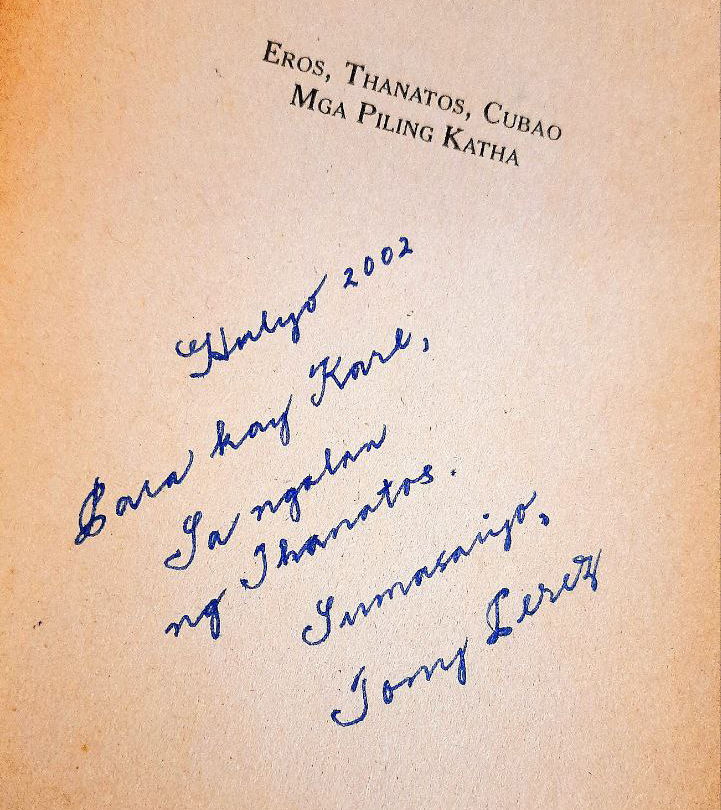 EROS, THANATOS, CUBAO
MGA PILING KATHA
Hulyo 2002
Para kay Karl,
Sa ngalan
ng Thanatos.
Sumasaiyo,
Tony Perez